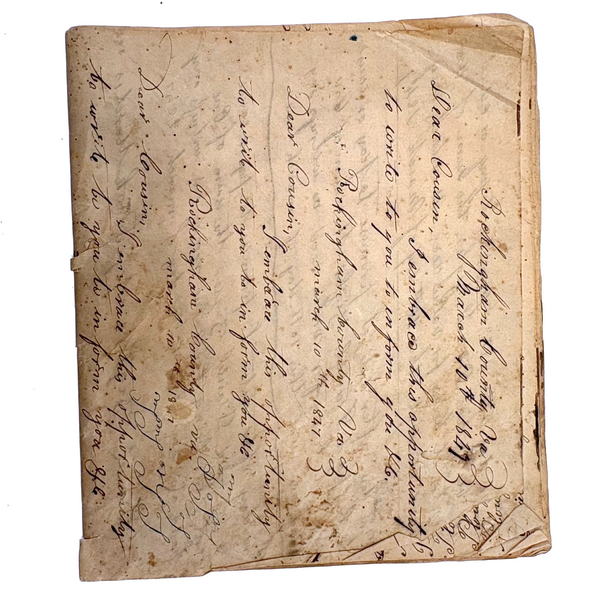 Rockingham County Va
March 10th 1847
Dear Cousin,
I embrace this opportunity
to write to you to inform you &c.
Rockingham County Va
march 10th 1847
Dear Cousin,
I embrace this opportunity
to writ to you to in form you &c
Rockingham County Va
march 10
Dear Cousin,
I embrace this opportunity
to write to you to in form you &c.